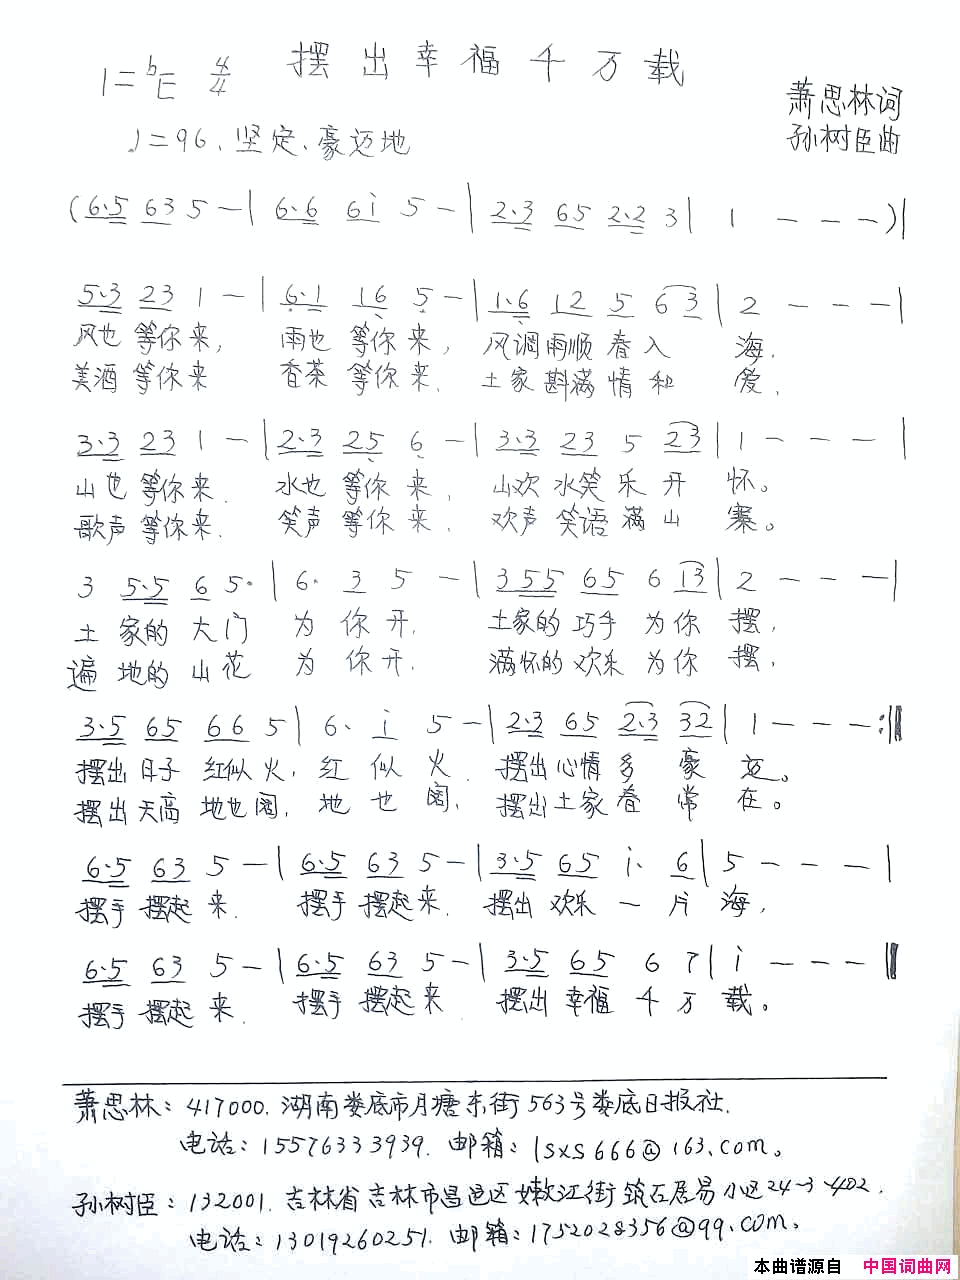 摆出幸福千万载
1=ᵇE 4/4
萧思林词
♩=96、坚定、豪迈地
孙树臣曲
(6·5 63 5 - | 6·6 6i 5 - | 2·3 65 2·2 3 | 1 - - - )|
5·3 23 1 - | 6·1 16 5 - | 1·6 12 5 63 | 2 - - - |
风也 等你 来, 雨也 等你 来, 风调雨顺 春 入 海.
美酒 等你 来 香茶 等你 来. 土家 斟满 情 和 爱.
3·3 23 1 - | 2·3 25 6 - | 3·3 23 5 23 | 1 - - - |
山也 等你 来. 水也 等你 来, 山欢 水笑 乐 开 怀。
歌声 等你 来. 笑声 等你 来. 欢声 笑语 满 山 寨。
3 5·5 6 5· | 6· 3 5 - | 3 55 65 6 i3 | 2 - - - |
土 家的 大 门 为 你 开. 土家的 巧手 为 你 摆,
遍 地的 山 花 为 你 开. 满怀的 欢乐 为 你 摆,
3·5 65 66 5 | 6· i 5 - | 2·3 65 2·3 32 | 1 - - - :‖
摆出 日子 红似 火, 红 似 火. 摆出 心情 多 豪 迈。
摆出 天高 地也 阔, 地 也 阔, 摆出 土家 春 常 在。
6·5 63 5 - | 6·5 63 5 - | 3·5 65 i· 6 | 5 - - - |
摆手 摆起 来. 摆手 摆起 来. 摆出 欢乐 一 片 海,
6·5 63 5 - | 6·5 63 5 - | 3·5 65 6 7 | i - - - ‖
摆手 摆起 来. 摆手 摆起 来 摆出 幸福 千 万 载。
萧思林: 417000. 湖南娄底市月塘东街563号娄底日报社.
电话: 15576333939. 邮箱: lsxs666@163.com。
孙树臣: 132001. 吉林省吉林市昌邑区嫩江街筑石居易小区24-3-402.
电话: 13019260251. 邮箱: 1752028356@qq.com.
本曲谱源自 中国词曲网